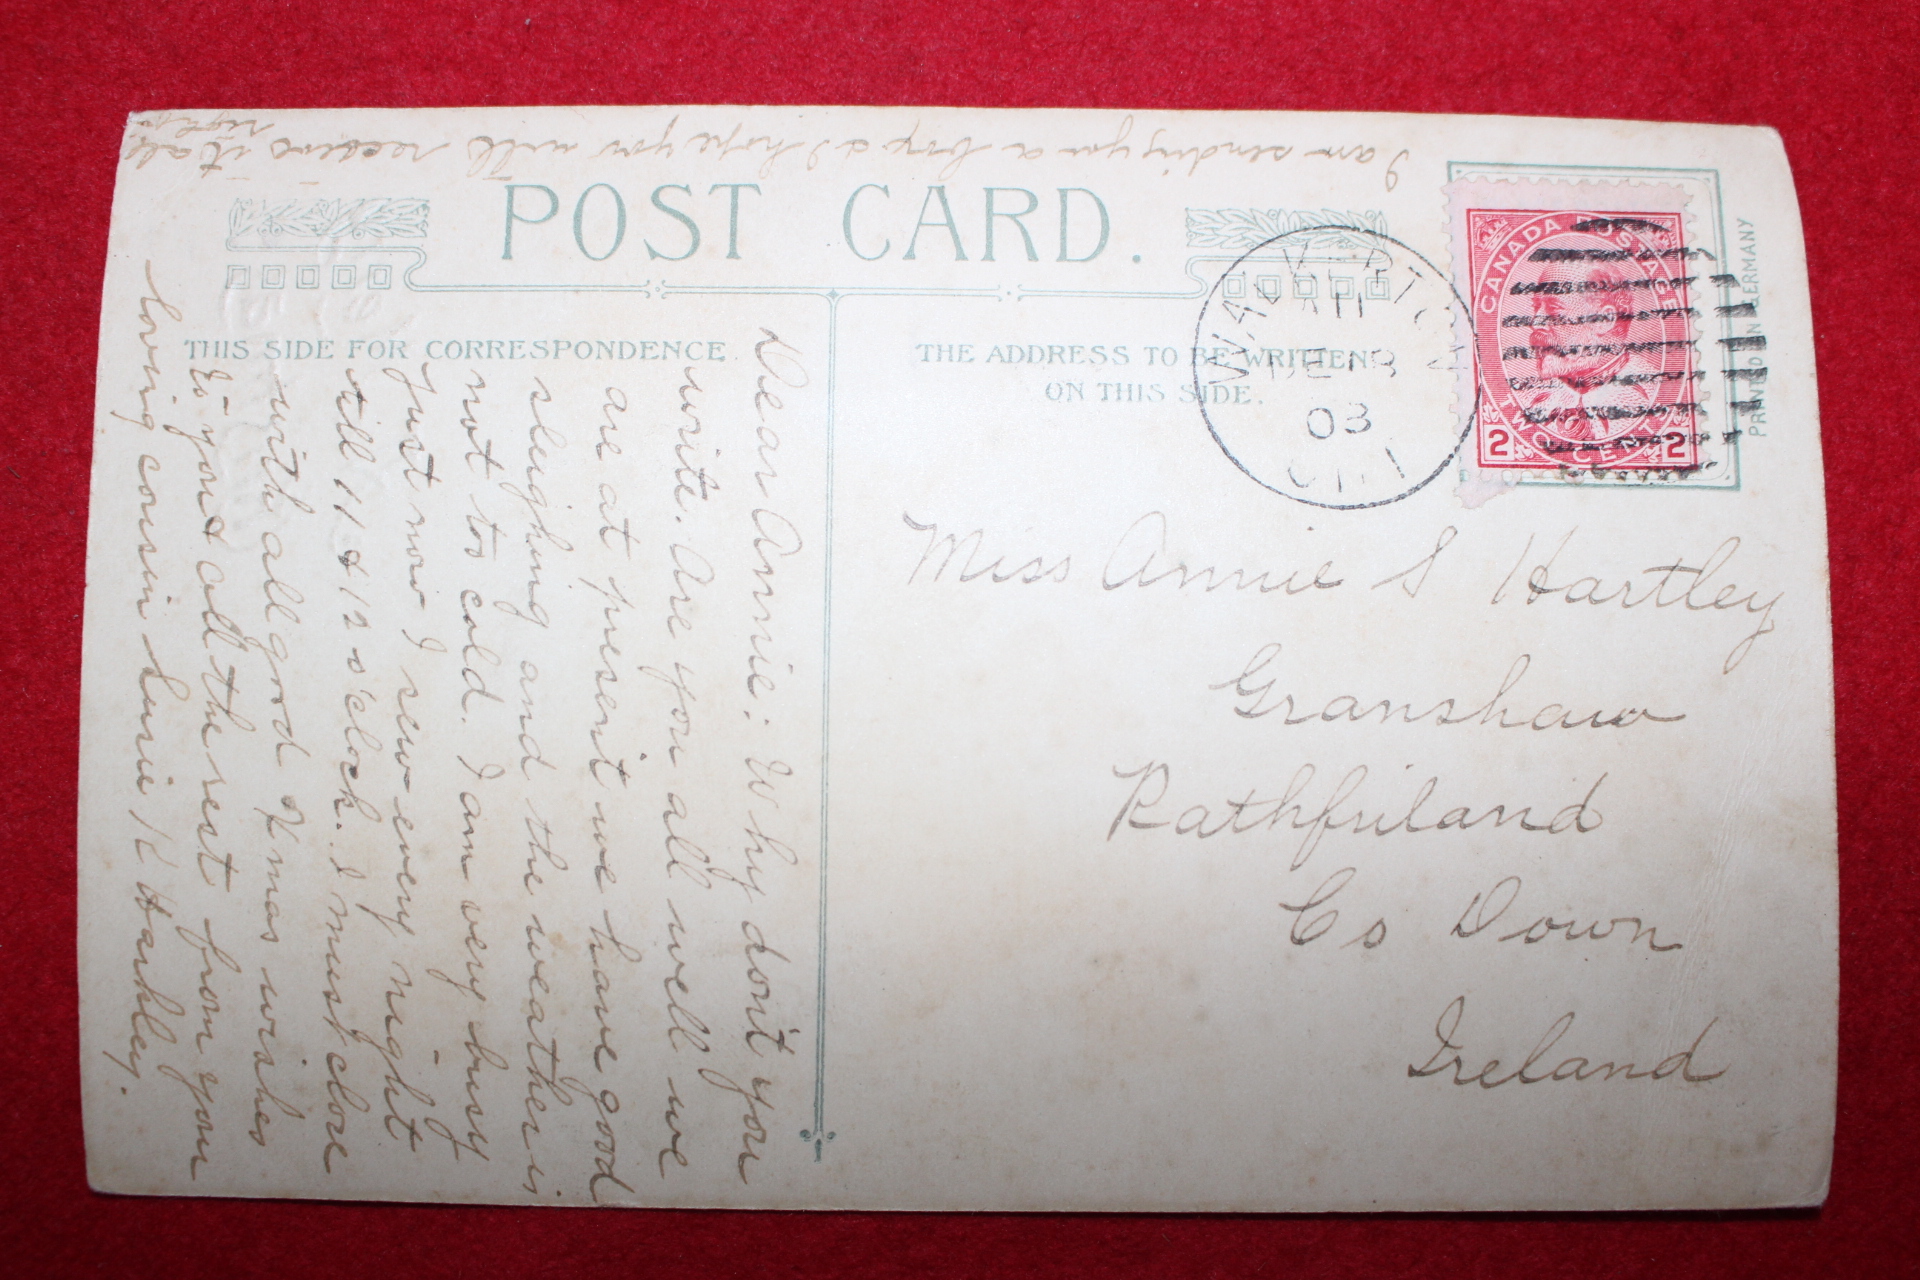 POST CARD.
THIS SIDE FOR CORRESPONDENCE
THE ADDRESS TO BE WRITTEN
ON THIS SIDE.
PRINTED IN GERMANY
CANADA POSTAGE
TWO CENTS
2 2
WAVERTON
AM
DE 8
08
Miss Annie S Hartley
Granshaw
Rathfriland
Co Down
Ireland
Dear Annie: Why don't you
write. Are you all well we
are at present we have good
sleighing and the weather is
not too cold. I am very busy
just now I sew every night
till 11 & 12 o'clock. I must close
with all good Xmas wishes
to you & all the rest from your
loving cousin K Hartley.
I am sending you a box & I hope you will receive it all
right